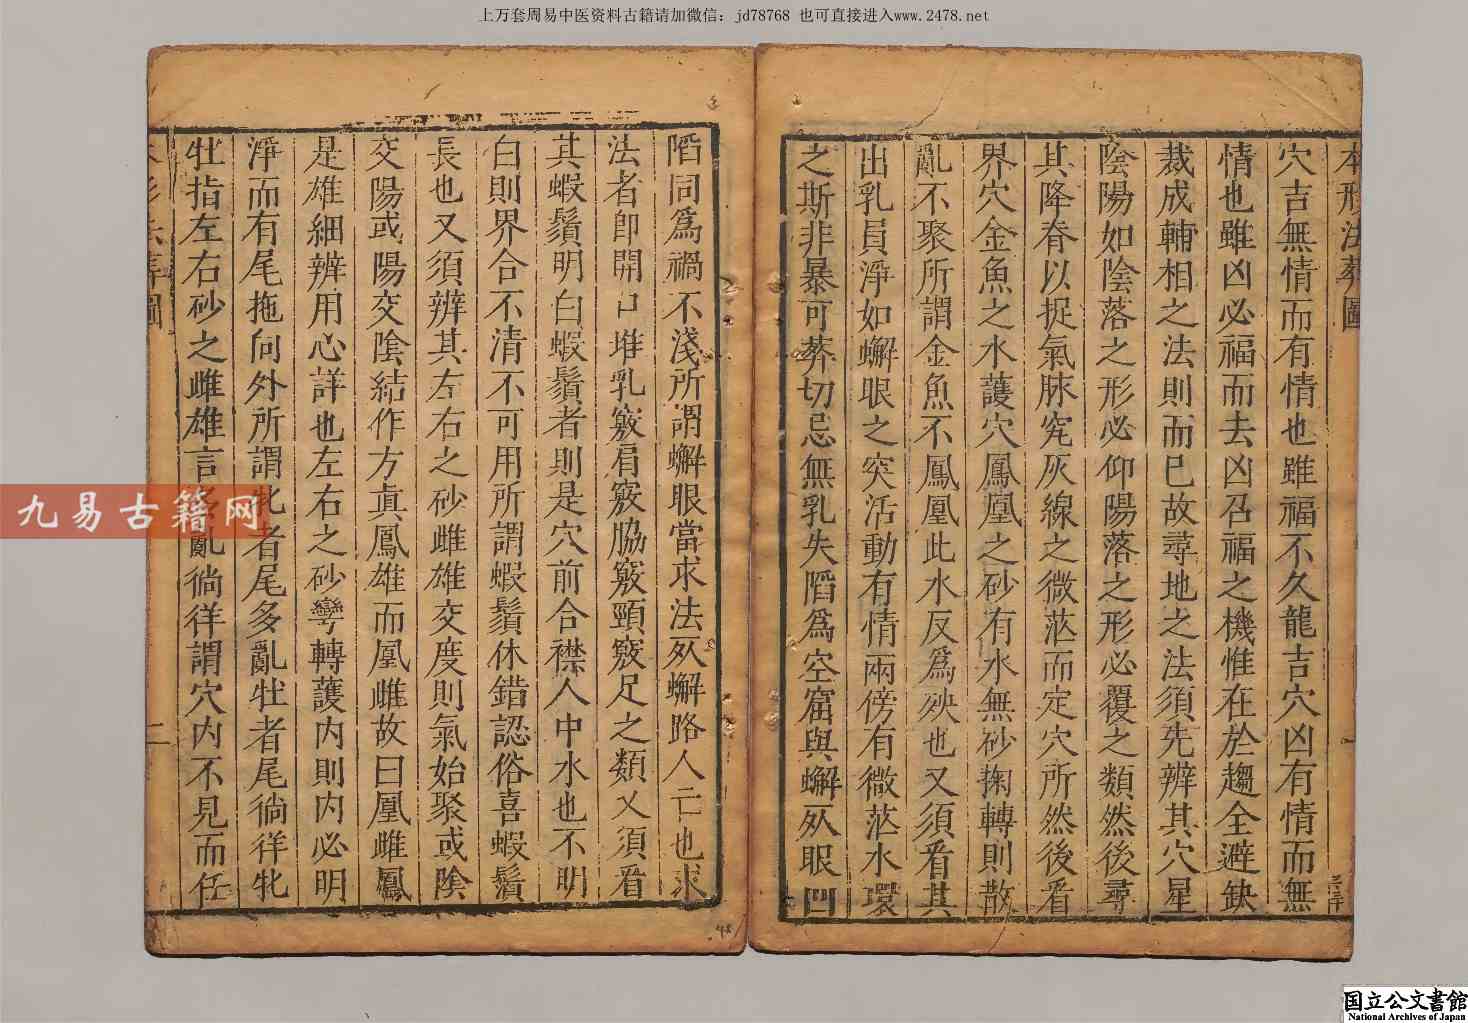 上万套周易中医资料古籍请加微信：jd78768 也可直接进入www.2478.net
本形法葬圖
穴吉無情而有情也雖福不久龍吉穴凶有情而無
情也雖凶必福而去凶召福之機惟在於趨全避缺
裁成輔相之法則而已故尋地之法須先辨其穴星
陰陽如陰落之形必仰陽落之形必覆之類然後尋
其降脊以捉氣脉究灰線之微茫而定穴所然後看
界穴金魚之水護穴鳳凰之砂有水無砂掬轉則散
亂不聚所謂金魚不鳳凰此水反為殃也又須看其
出乳員淨如蠏眼之突活動有情兩傍有微茫水環
之斯非暴可葬切忌無乳失陷為空窟與蠏死眼凹
陷同為禍不淺所謂蠏眼當求法死蠏路人亡也求
法者即開口堆乳竅肩竅脇竅頸竅足之類又須看
其蝦鬚明白蝦鬚者則是穴前合襟人中水也不明
白則界合不清不可用所謂蝦鬚休錯認俗喜蝦鬚
長也又須辨其左右之砂雌雄交度則氣始聚或陰
交陽或陽交陰結作方真鳳雄而凰雌故曰凰雌鳳
是雄細辨用心詳也左右之砂彎轉護內則內必明
淨而有尾拖向外所謂牝者尾多亂牡者尾徜徉牝
牡指左右砂之雌雄言亂徜徉謂穴內不見而任
二
48
九易古籍网
国立公文書館
National Archives of Japan